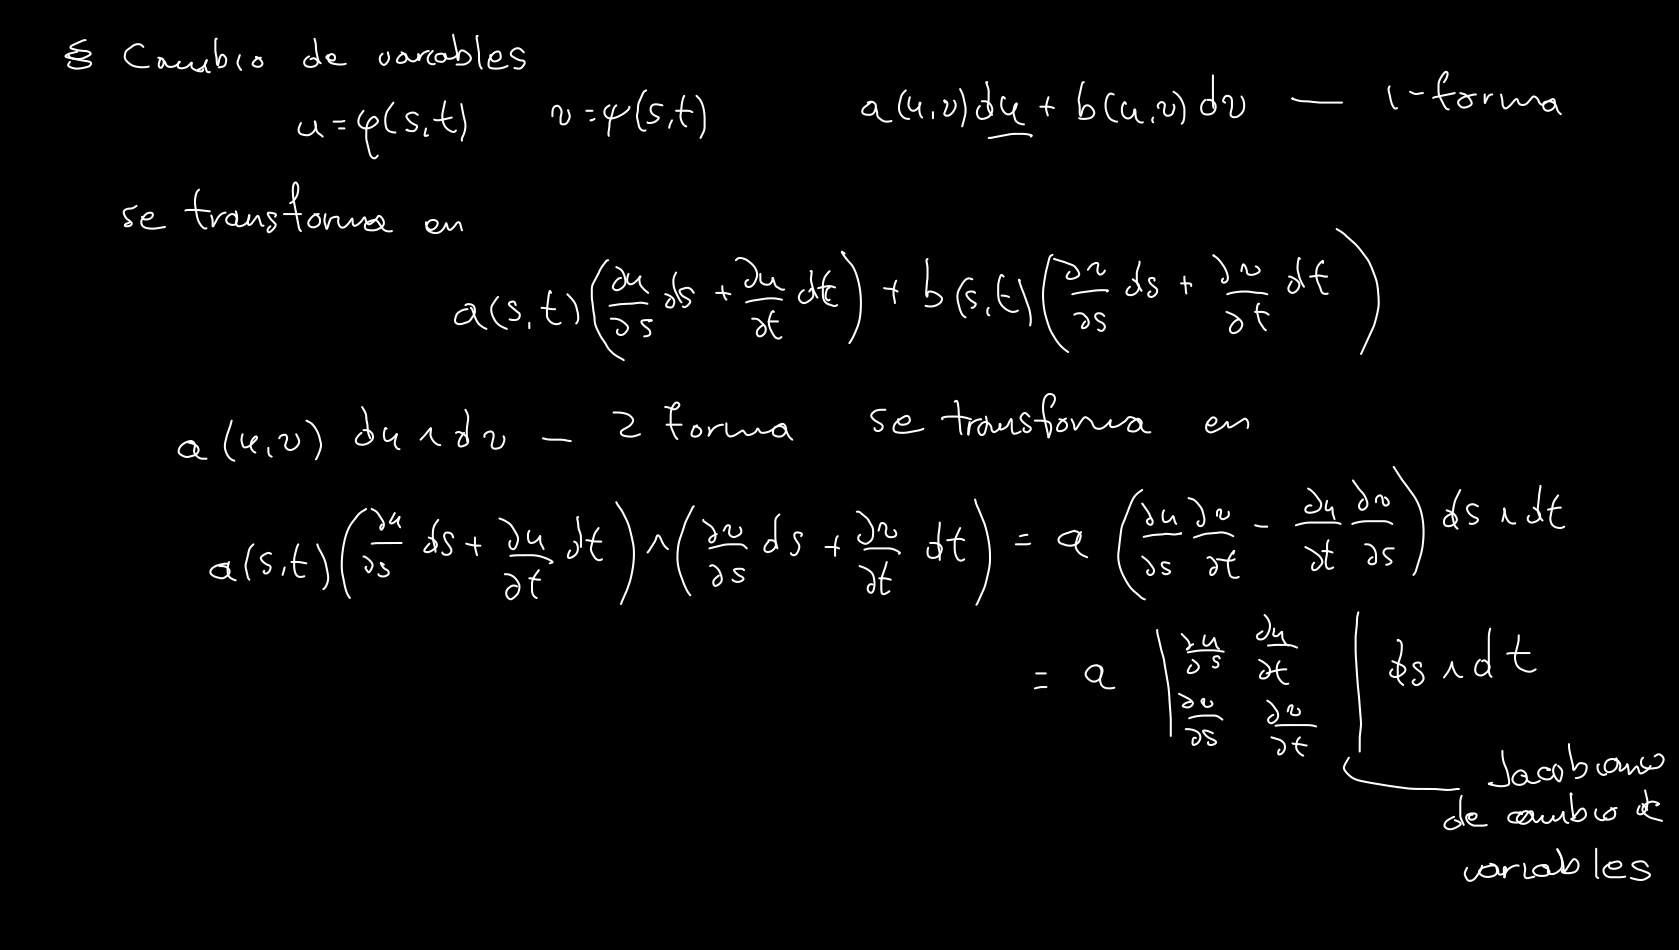 § Cambio de variables
u = φ(s,t)   v = ψ(s,t)   a(u,v) du + b(u,v) dv — 1-forma
se transforma en
a(s,t) (∂u/∂s ds + ∂u/∂t dt) + b(s,t) (∂v/∂s ds + ∂v/∂t dt)
a(u,v) du ∧ dv — 2 forma se transforma en
a(s,t) (∂u/∂s ds + ∂u/∂t dt) ∧ (∂v/∂s ds + ∂v/∂t dt) = a (∂u/∂s ∂v/∂t − ∂u/∂t ∂v/∂s) ds ∧ dt
= a | ∂u/∂s ∂u/∂t ; ∂v/∂s ∂v/∂t | ds ∧ dt
Jacobiano
de cambio de
variables